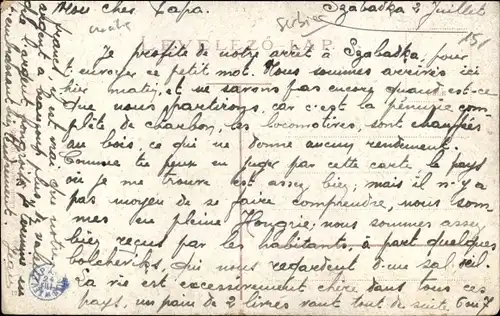 Mon cher Papa.
Szabadka 2 Juillet
croate
Serbie
LEVELEZŐ-LAP.
Je profite de notre arrêt à Szabadka, pour
t'envoyer ce petit mot. Nous sommes arrivés ici
hier matin, et ne savons pas encore quand est-ce
que nous partirons, car c'est la pénurie com-
plète de charbon, les locomotives, sont chauffées
au bois, ce qui ne donne aucun rendement.
Comme tu peux en juger par cette carte, le pays
où je me trouve est assez bien; mais il n'y a
pas moyen de se faire comprendre, nous som-
mes en pleine Hongrie. nous sommes assez
bien reçus par les habitants, à part quelques
bolcheviks, qui nous regardent d'un sal œil.
La vie est excessivement chère dans tous ces
pays, un pain de 2 livres vaut tout de suite 6 ou 7
francs, il est vrai que notre
argent a beaucoup plus de valeur
que l'argent hongrois. Je termine en
t'embrassant bien tendrement.